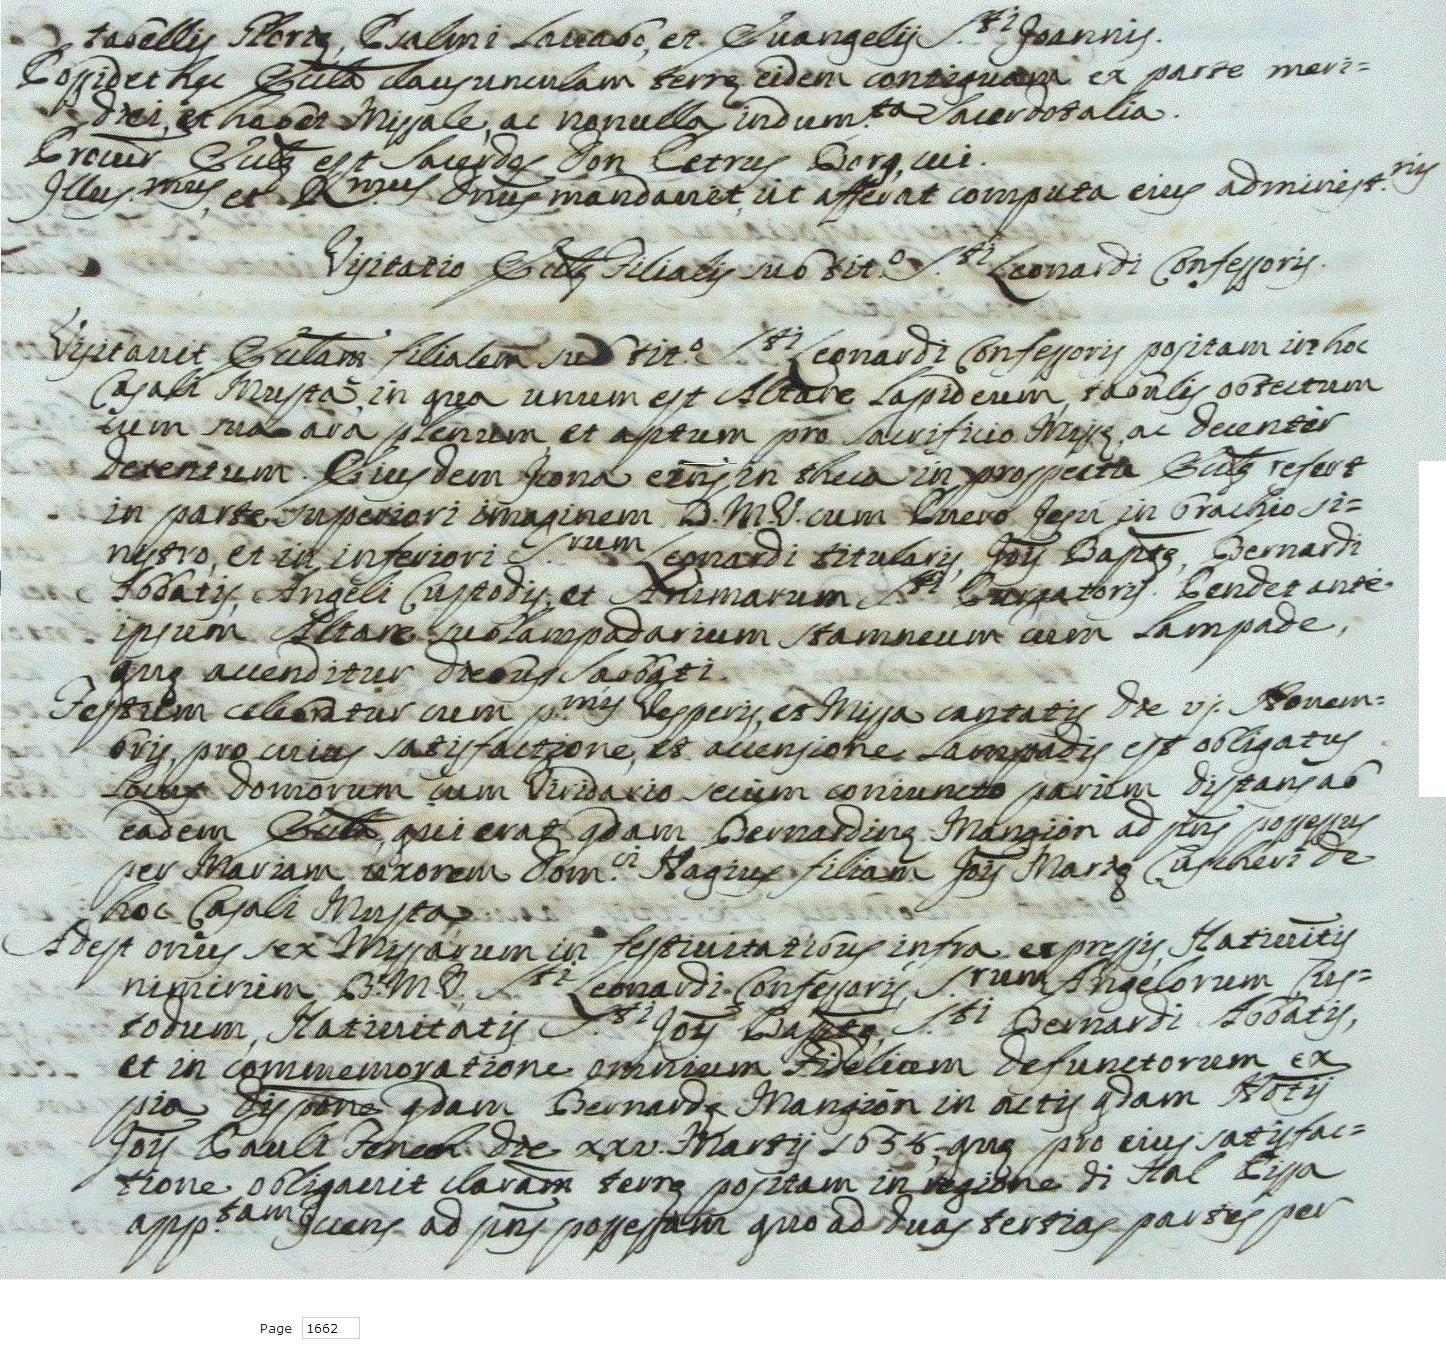 tabellis Gloriæ, Psalmi Lavabo, et Evangelij S.ti Joannis.
Possidet hęc Ecclã clausunculam terrę eidem contiguam ex parte meri=
diei, et habet Missale, ac nonulla indum.ta Sacerdotalia.
Procur Ecclę est Sacerdos Don Petrus Borg, cui.
Illus.mus, et R.mus Dnus mandavit, ut afferat computa eius administ.nis
Visitatio Ecclę Filialis sub tit.o S.ti Leonardi Confessoris.
Visitavit Ecclam filialem sub tit.o S.ti Leonardi Confessoris positam in hoc
Casali Mustã, in qua unum est Altare Lapideum, tabulis obtectum
cum sua ara plenum et aptum pro sacrificio Missę, ac decenter
detentum. Eiusdem Icona in theca in prospectu Ecclę refert
in parte superiori imaginem B.M.V. cum Puero Jesu in brachio si=
nistro, et in inferiori S.rum Leonardi titularis, Jois Baptę, Bernardi
Abbatis, Angeli Custodis, et Animarum S.ti Purgatorij. Pendet ante
ipsum Altare sub lampadarium stamneum cum Lampade,
quę accenditur diebus Sabbati.
Festum celebratur cum p.mis Vesperis, et Missa cantatis die vj. Novem=
bris, pro cuius satisfactione, et accensione Lampadis est obligatus
locus domorum cum Viridario secum coniuncto parum distans ab
eadem Ecclã, qui erat qdam Bernardinę Mangion ad pns possessus
per Mariam uxorem Dom.ci Nagius filiam Jois Marię Cascheri de
hoc Casali Musta
Adest onus sex Missarum in festivitatibus infra expressis, Nativitis
nimirum B.M.V. S.ti Leonardi Confessoris, S.rum Angelorum Cus=
todum, Nativitatis S.ti Jois Baptę, S.ti Bernardi Abbatis,
et in commemoratione omnium Fidelium defunctorum ex
pia dispone qdam Bernardę Mangion in actis qdam Notij
Jois Pauli Fenech die xxv. Martij 1658, quę pro eius satisfac=
tione obligavit clavam terrę positam in regione di Hal Pissa
app.tam ad pns possessam quo ad duas tertias partes per
Page 1662